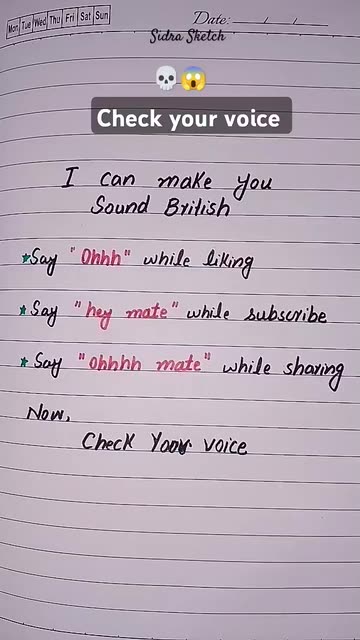 Mon Tue Wed Thu Fri Sat Sun
Date: __/__/__
Sidra Sketch
💀😱
Check your voice
I can make you
Sound British
★Say "Ohhh" while liking
★Say "hey mate" while subscribe
★Say "ohhhh mate" while sharing
Now,
Check Your voice